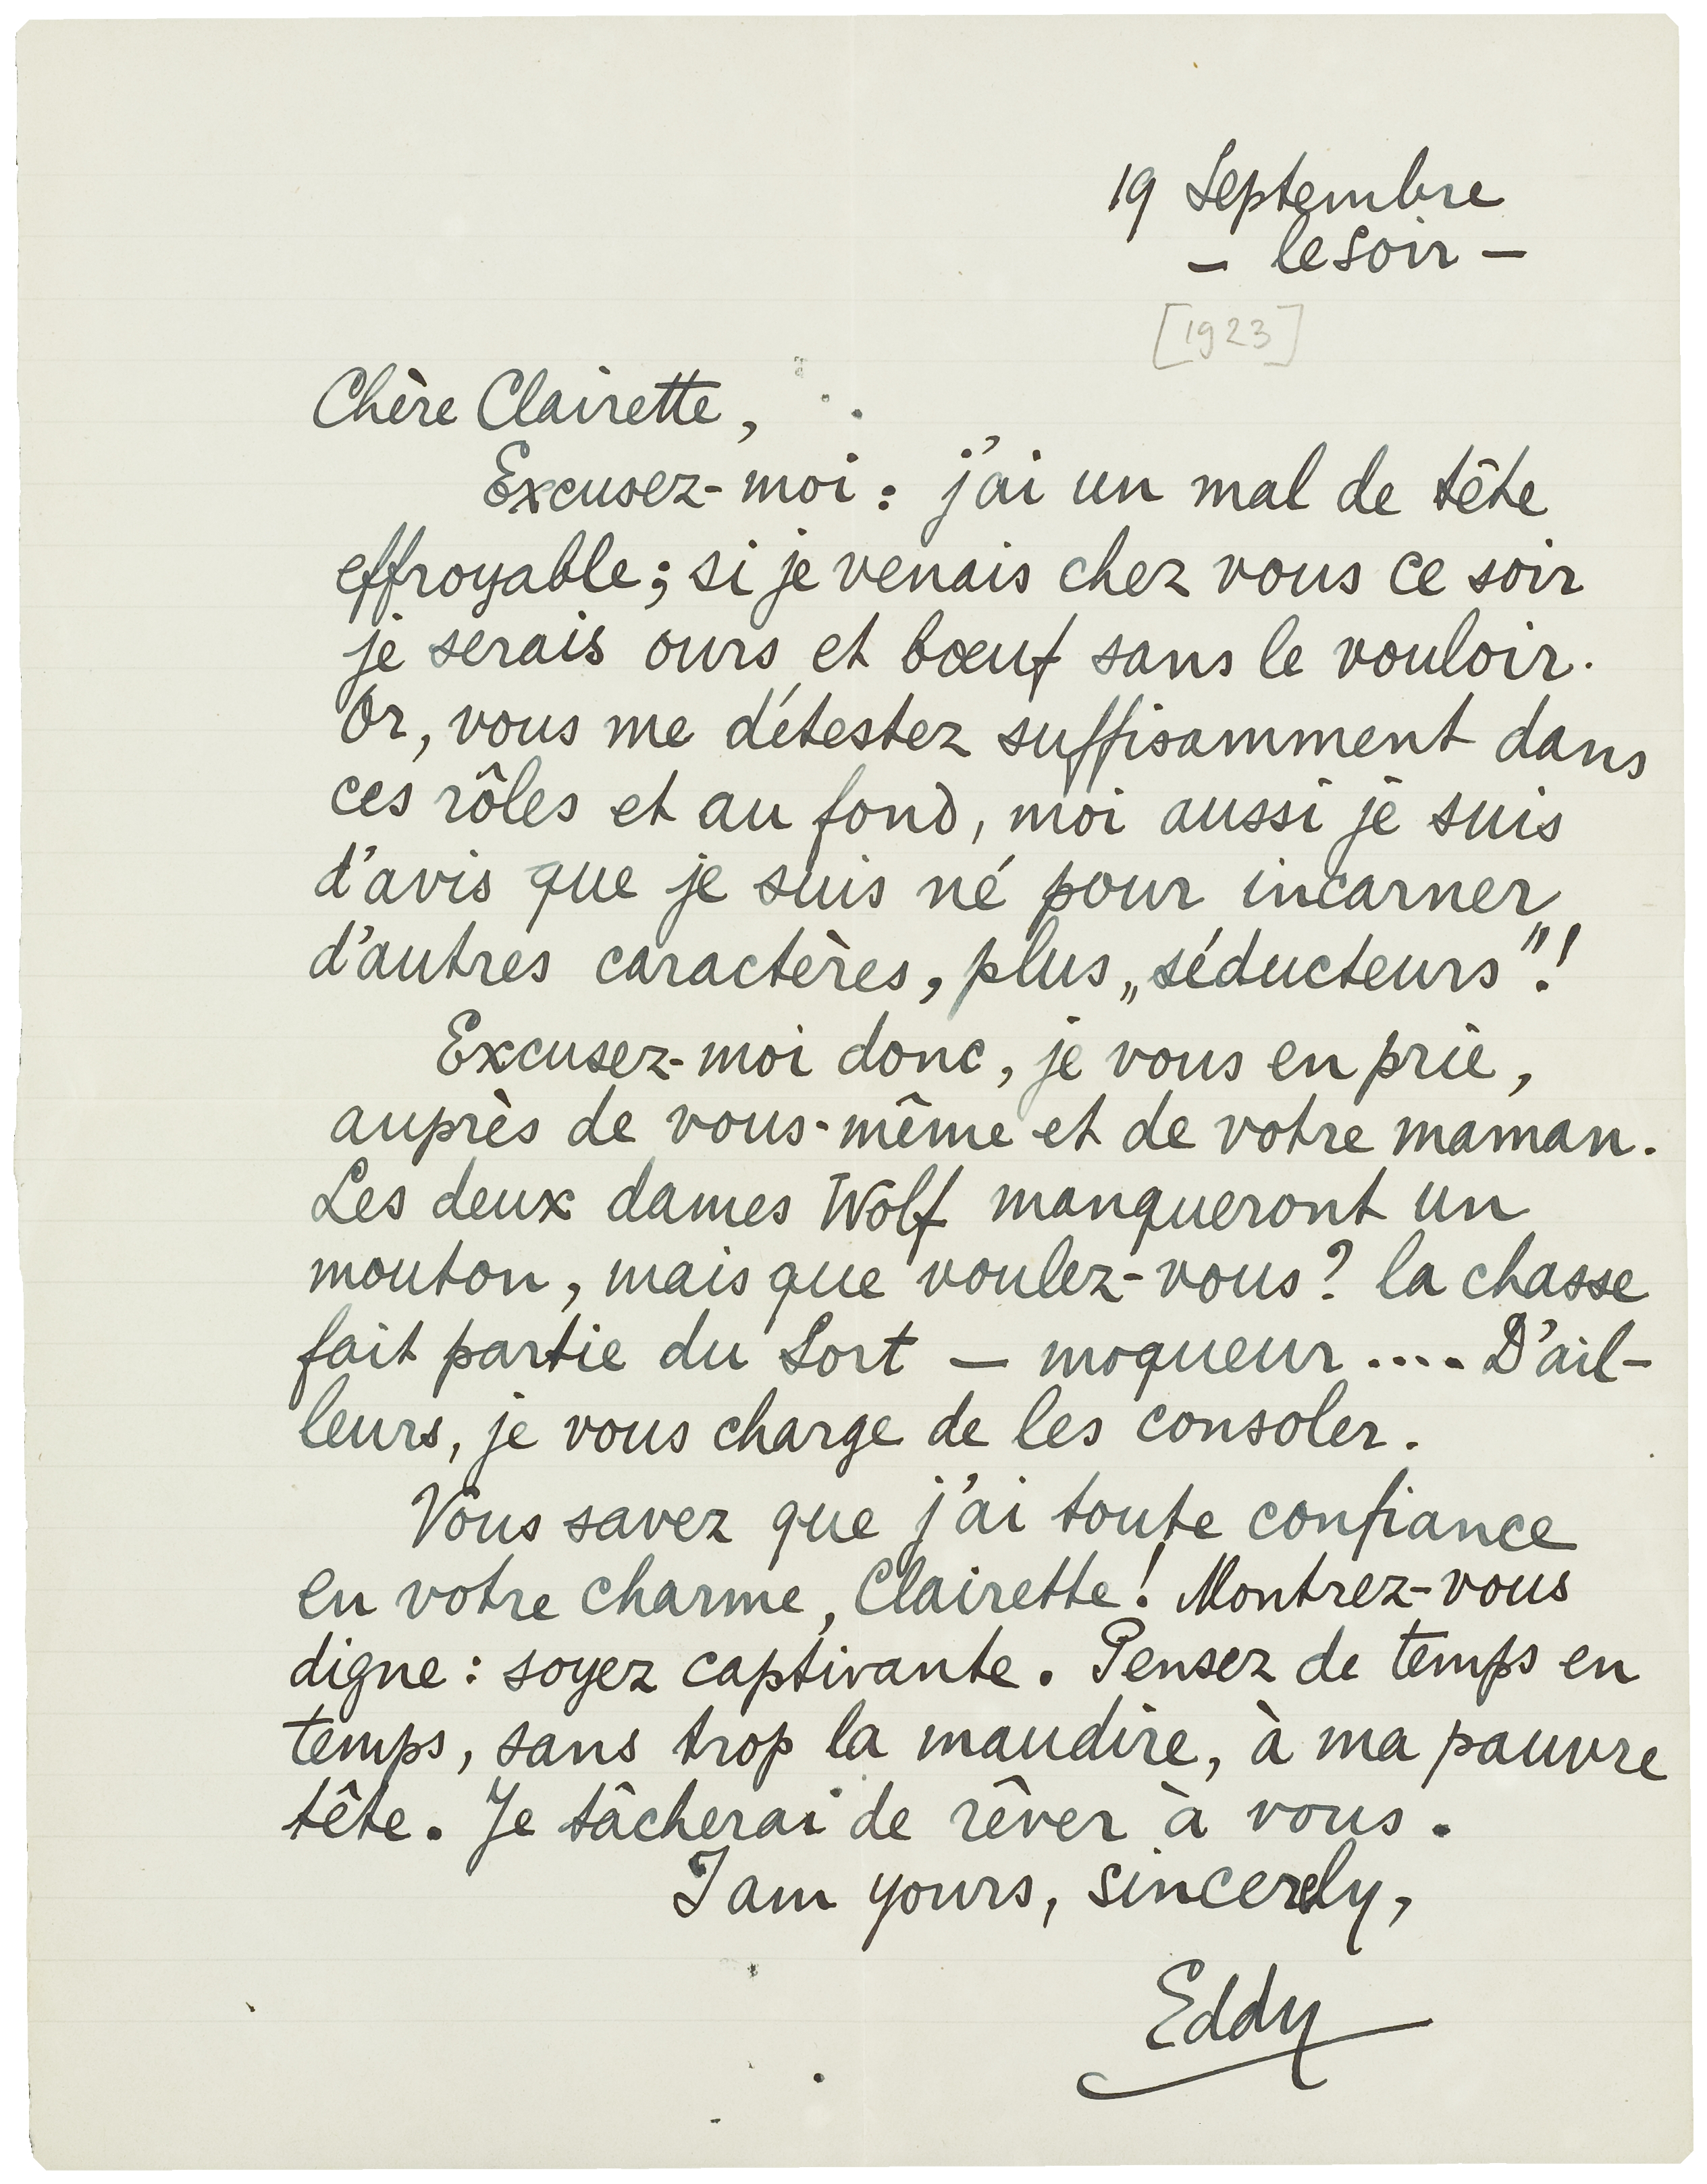 19 Septembre
— le soir —
[1923]
Chère Clairette,
Excusez-moi : j'ai un mal de tête
effroyable ; si je venais chez vous ce soir
je serais ours et bœuf sans le vouloir.
Or, vous me détestez suffisamment dans
ces rôles et au fond, moi aussi je suis
d'avis que je suis né pour incarner
d'autres caractères, plus „séducteurs"!
Excusez-moi donc, je vous en prie,
auprès de vous-même et de votre maman.
Les deux dames Wolf manqueront un
mouton, mais que voulez-vous? la chasse
fait partie du Sort — moqueur .... D'ail-
leurs, je vous charge de les consoler.
Vous savez que j'ai toute confiance
en votre charme, Clairette! Montrez-vous
digne : soyez captivante. Pensez de temps en
temps, sans trop la maudire, à ma pauvre
tête. Je tâcherai de rêver à vous.
I am yours, sincerely,
Eddy